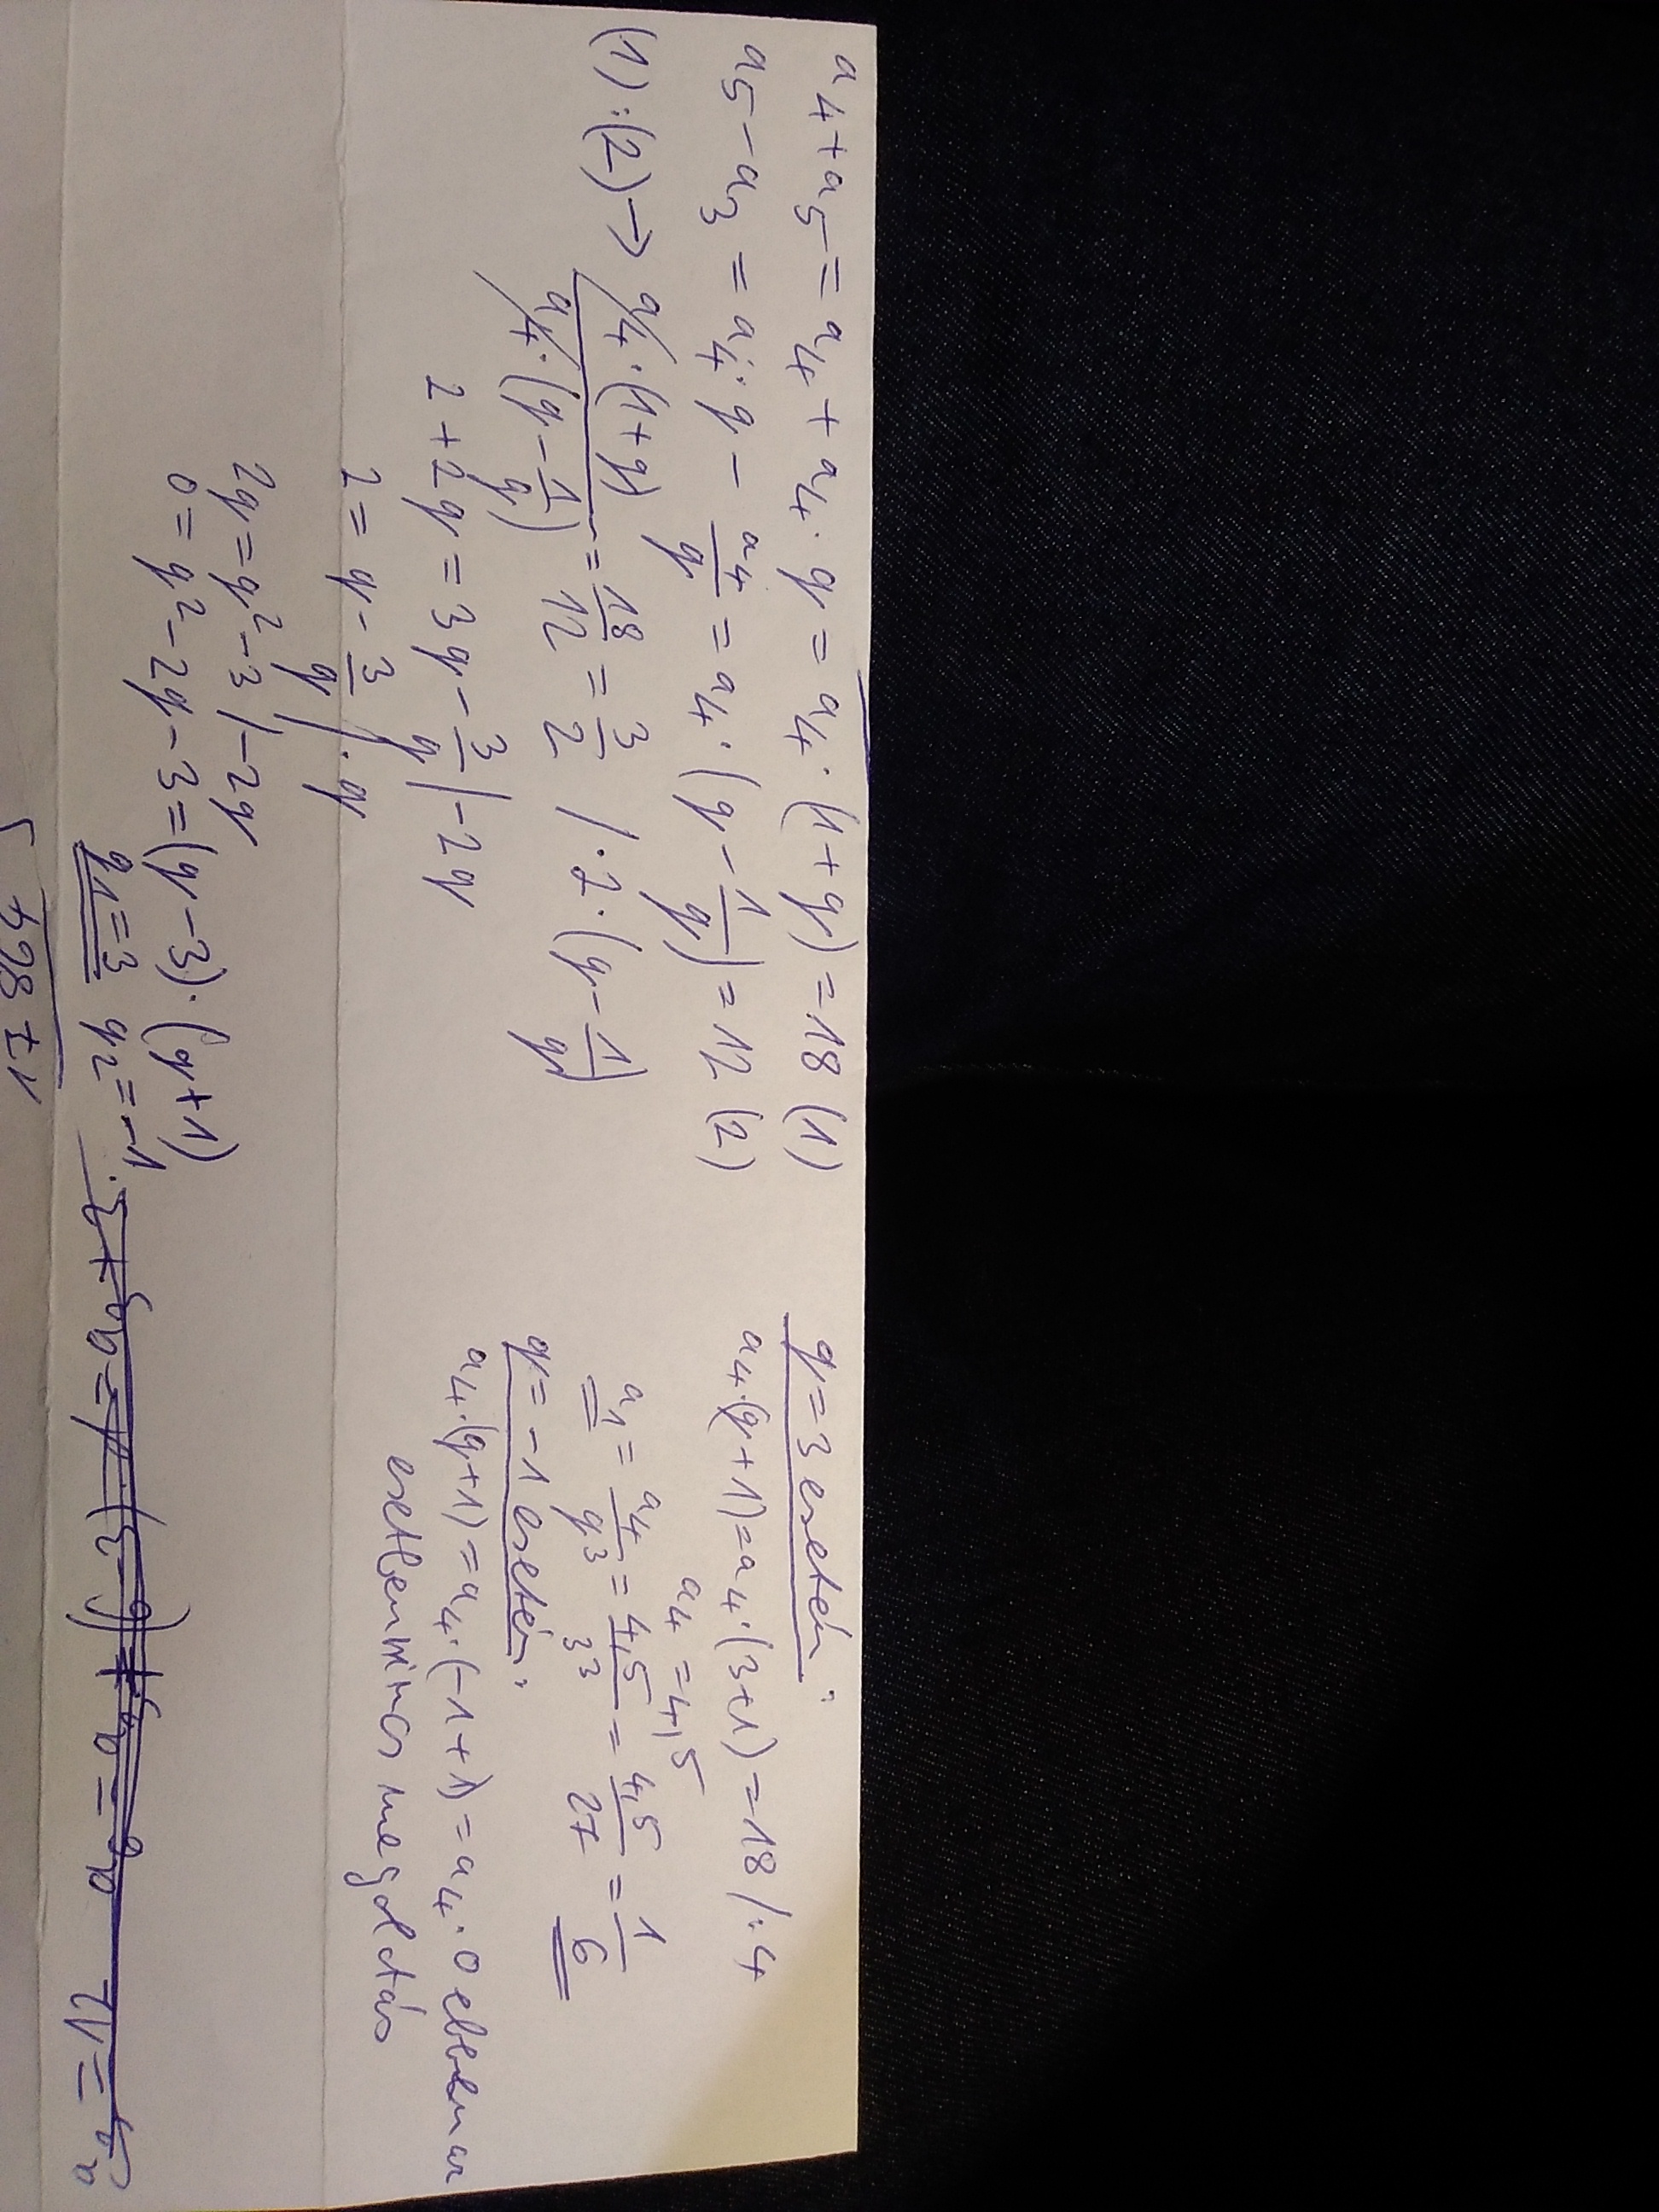 a4+a5=a4+a4·q=a4·(1+q)=18 (1)
a5-a3=a4·q-a4/q=a4·(q-1/q)=12 (2)
(1):(2)→ a4·(1+q)/a4·(q-1/q)=18/12=3/2 /·2·(q-1/q)
2+2q=3q-3/q /-2q
2=q-3/q /·q
2q=q²-3 /-2q
0=q²-2q-3=(q-3)·(q+1)
q1=3 q2=-1
q=3 esetén:
a4·(q+1)=a4·(3+1)=18 /:4
a4=4,5
a1=a4/q³=4,5/3³=4,5/27=1/6
q=-1 esetén:
a4·(q+1)=a4·(-1+1)=a4·0 ebben az
esetben nincs megoldás